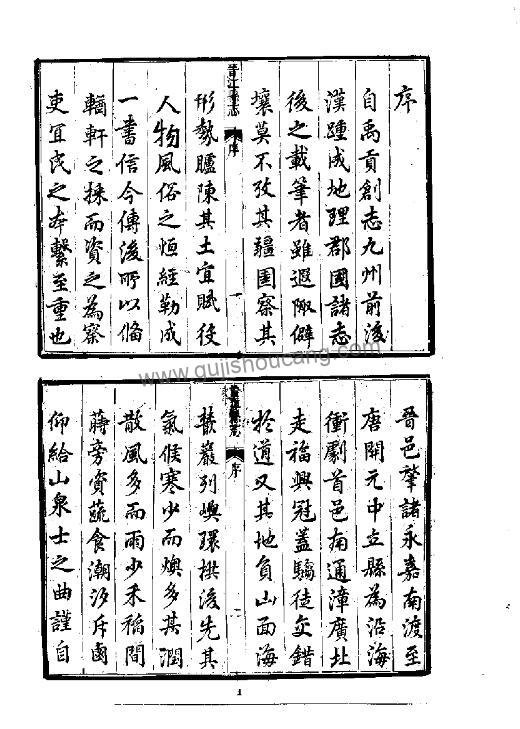 序
自禹貢創志九州前後
漢踵成地理郡國諸志
後之載筆者雖遐陬僻
壤莫不攷其疆圉察其
晉江縣志
序
一
形勢臚陳其土宜賦役
人物風俗之恒經勒成
一書信今傳後所以備
輶軒之採而資之為察
吏宜民之本繫至重也
晉邑肇諸永嘉南渡至
唐開元中立縣為沿海
衝劇首邑南通漳廣北
走福興冠蓋驕徒交錯
於道又其地負山面海
晉江縣志
序
二
叢巖列嶼環拱後先其
氣候寒少而燠多其潤
散風多而雨少禾稻間
蒔旁資蔬食潮汐斥鹵
仰給山泉士之曲謹自
1
www.gujishoucang.com